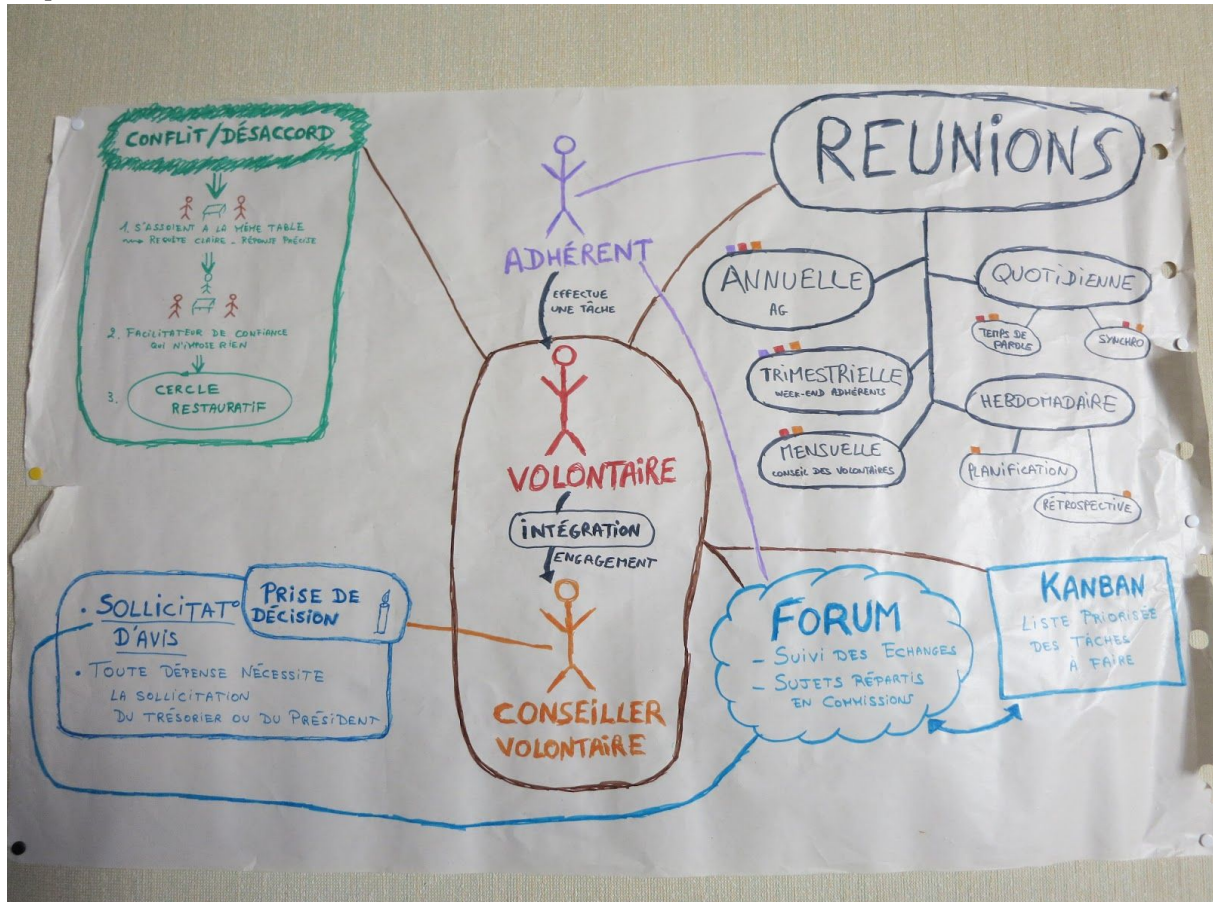 CONFLIT/DÉSACCORD
1. S'ASSOIENT A LA MÊME TABLE
REQUÊTE CLAIRE - RÉPONSE PRÉCISE
2. FACILITATEUR DE CONFIANCE
QUI N'IMPOSE RIEN
3. CERCLE
RESTAURATIF
ADHÉRENT
EFFECTUE
UNE TÂCHE
VOLONTAIRE
INTÉGRATION
ENGAGEMENT
CONSEILLER
VOLONTAIRE
REUNIONS
ANNUELLE
AG
TRIMESTRIELLE
WEEK-END ADHÉRENTS
MENSUELLE
CONSEIL DES VOLONTAIRES
QUOTIDIENNE
TEMPS DE
PAROLE
SYNCHRO
HEBDOMADAIRE
PLANIFICATION
RÉTROSPECTIVE
PRISE DE
DÉCISION
• SOLLICITAT°
D'AVIS
• TOUTE DÉPENSE NÉCESSITE
LA SOLLICITATION
DU TRÉSORIER OU DU PRÉSIDENT
FORUM
- SUIVI DES ECHANGES
- SUJETS RÉPARTIS
EN COMMISSIONS
KANBAN
LISTE PRIORISÉE
DES TÂCHES
A FAIRE